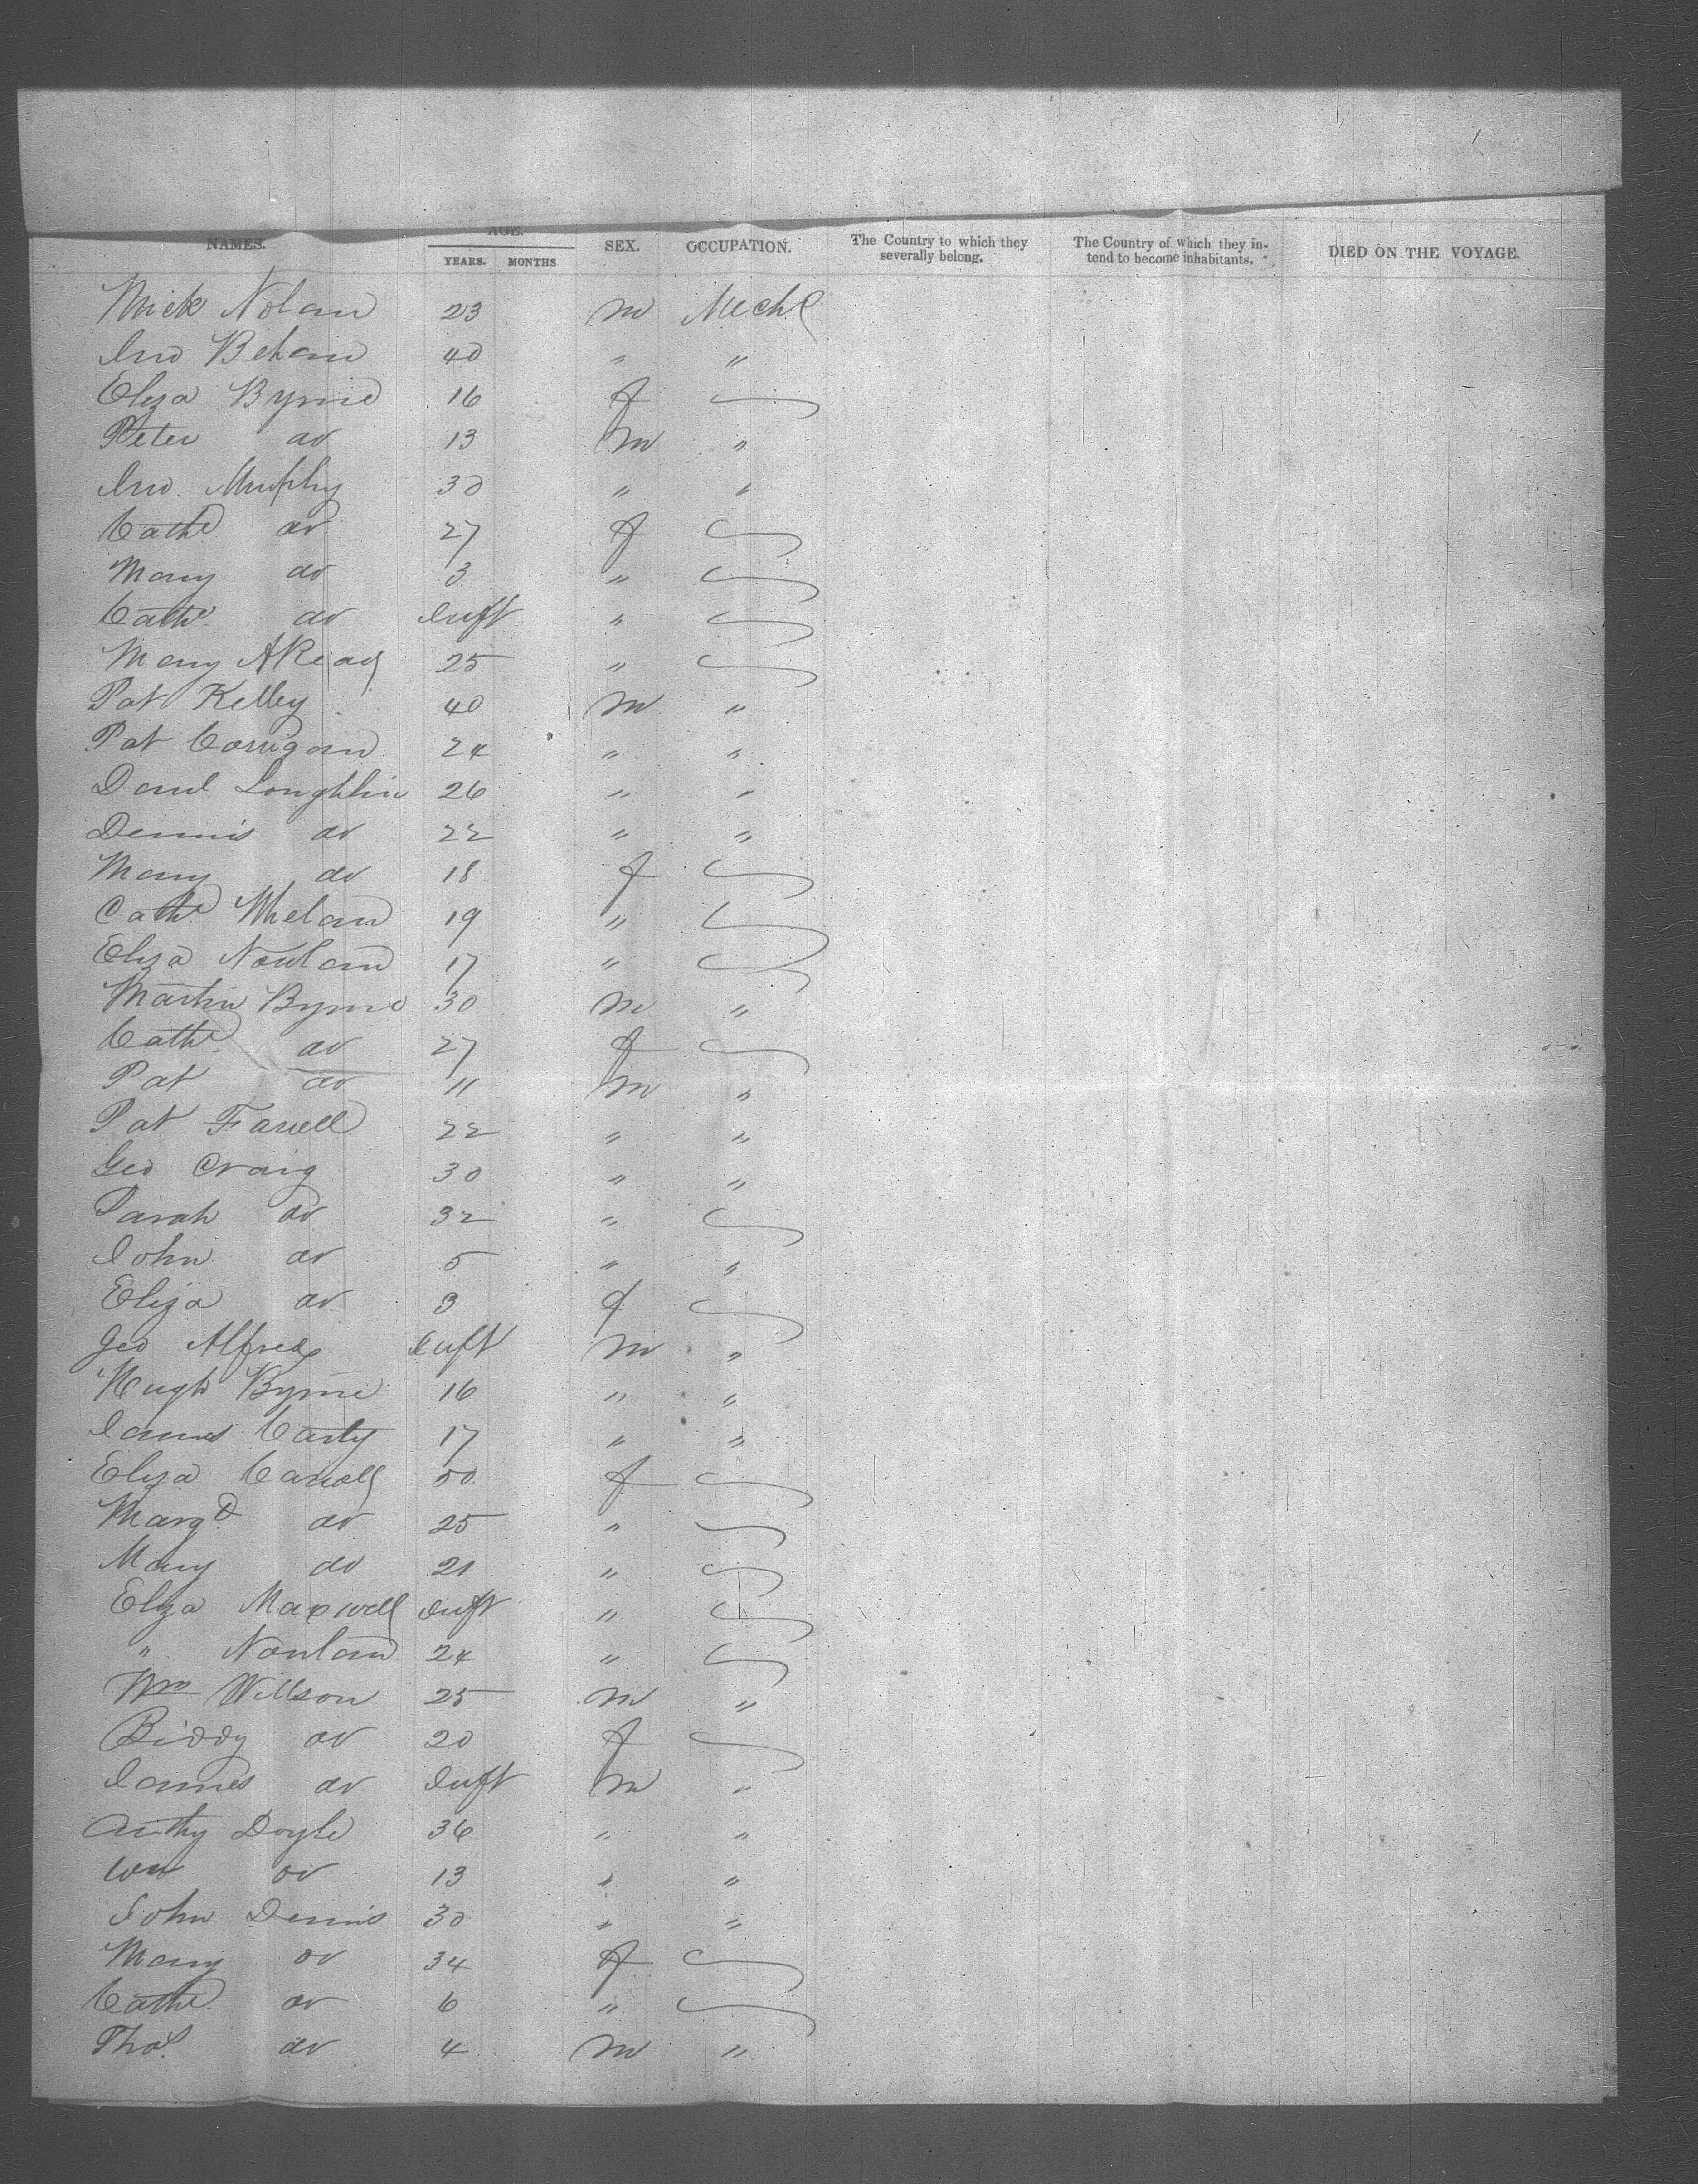 NAMES. AGE. YEARS. MONTHS SEX. OCCUPATION. The Country to which they severally belong. The Country of which they intend to become inhabitants. DIED ON THE VOYAGE.
Mick Nolan 23 m Mech
Jno Behan 40 " "
Eliza Byrne 16 f
Peter do 13 m "
Jno. Murphy 30 " "
Cathe do 27 f
Mary do 3 "
Cathe do Inft "
Mary 25 "
Pat Kelley 40 m "
Pat Corrigan 24 " "
Danl Loughlin 26 " "
Dennis do 22 " "
Mary do 18 f
Cathe Whelan 19 "
Eliza Nowlan 17 "
Martin Byrne 30 m "
Cathe do 27 f
Pat do 11 m "
Pat Farrell 22 " "
Geo Craig 30 " "
Sarah do 32 "
John do 5 " "
Eliza do 3 f
Geo Alfred Inft m "
Hugh Byrne 16 " "
James Carty 17 " "
Eliza Carroll 50 f
Margt do 25 "
Mary do 21 "
Eliza Maxwell Inft "
" Nowlan 24 "
Wm Willson 25 m "
Biddy do 20 f
James do Inft m "
Anthy Doyle 36 " "
Wm do 13 " "
John Dennis 30 " "
Mary do 34 f
Cathe do 6 "
Thos do 4 m "